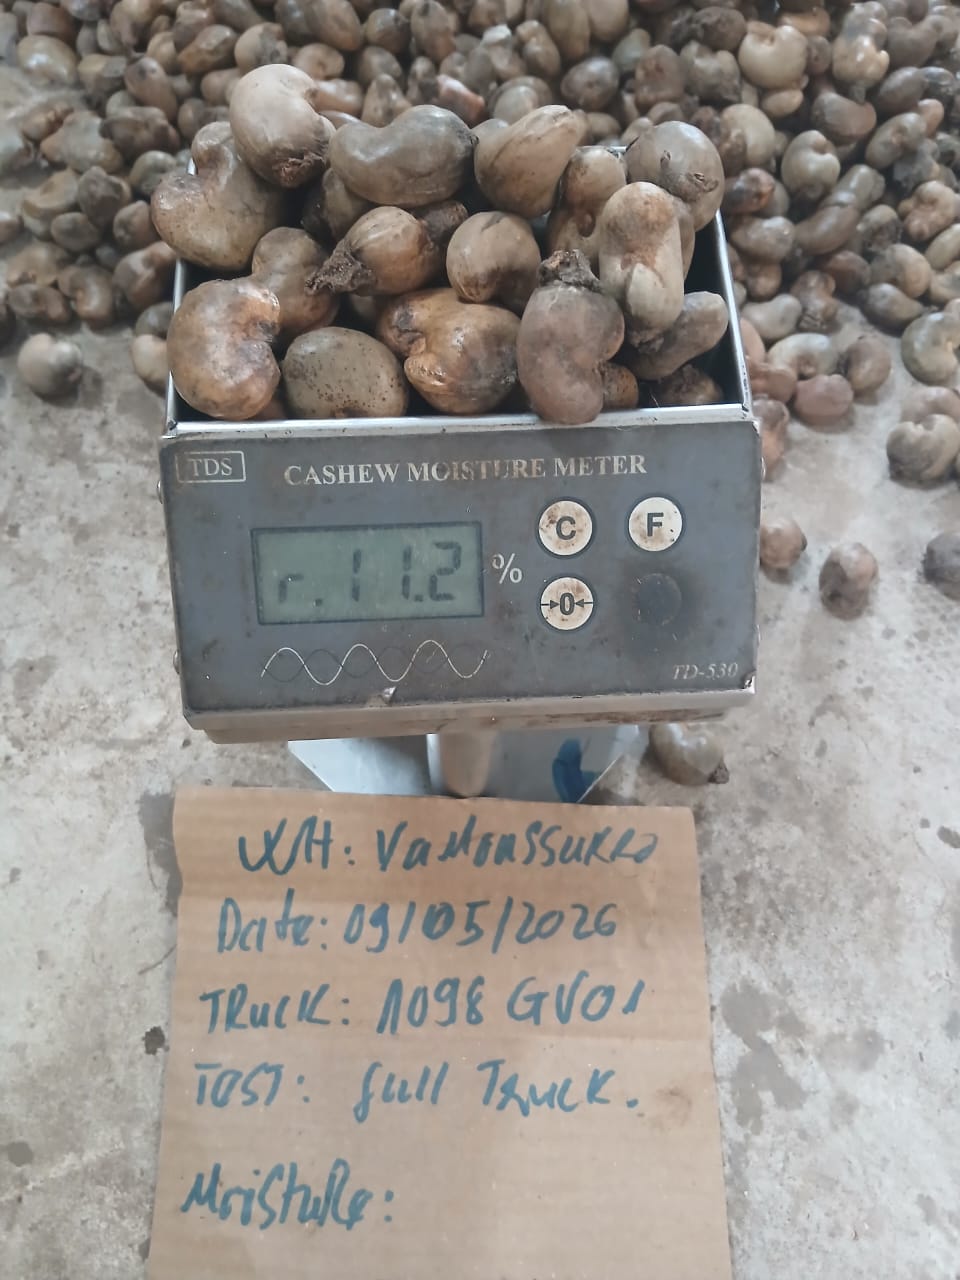 TDS
CASHEW MOISTURE METER
C
F
r. 11.2 %
→0←
TD-530
WH: Yamoussukro
Date: 09/05/2026
TRuck: 1098 GV01
TEST: full Truck.
Moisture: